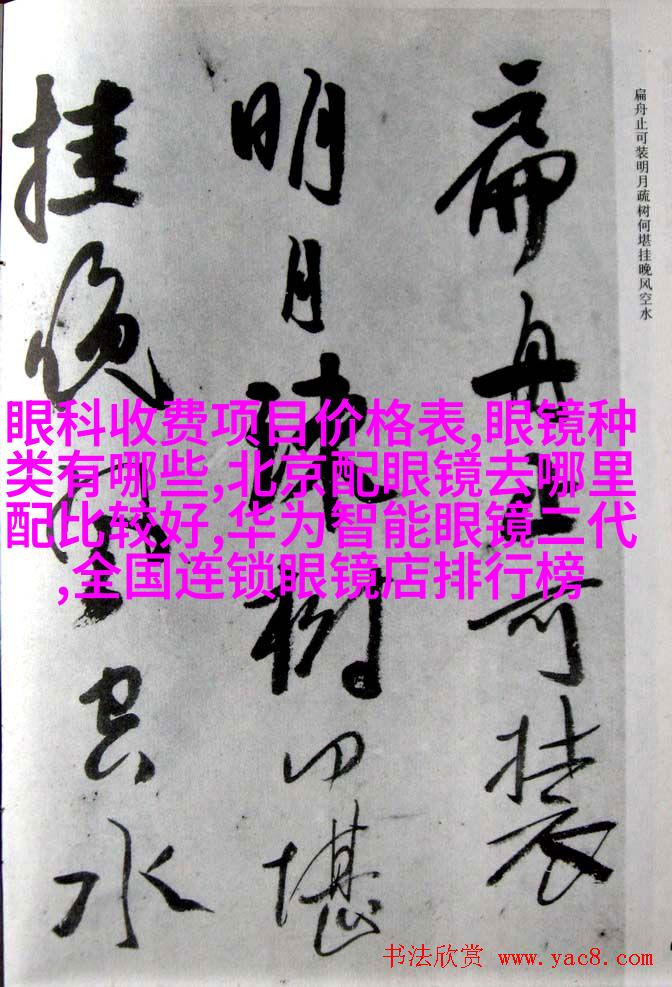 扁舟止可装
明月疏树何堪
挂晚风空水
扁舟止可装明月疏树何堪挂晚风空水
眼科收费项目价格表,眼镜种
类有哪些,北京配眼镜去哪里
配比较好,华为智能眼镜二代
,全国连锁眼镜店排行榜
书法欣赏 www.yac8.com